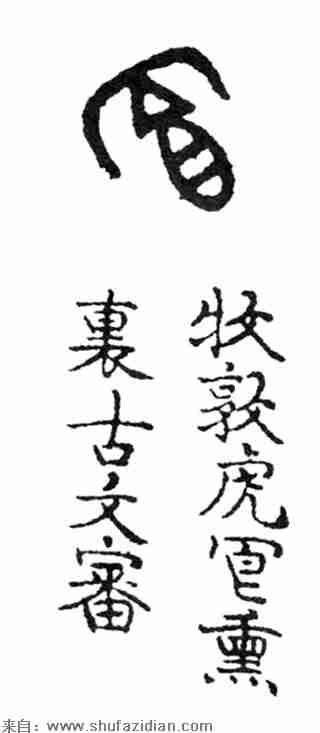 牧敦虎冟熏
裏古文審
来自：www.shufazidian.com